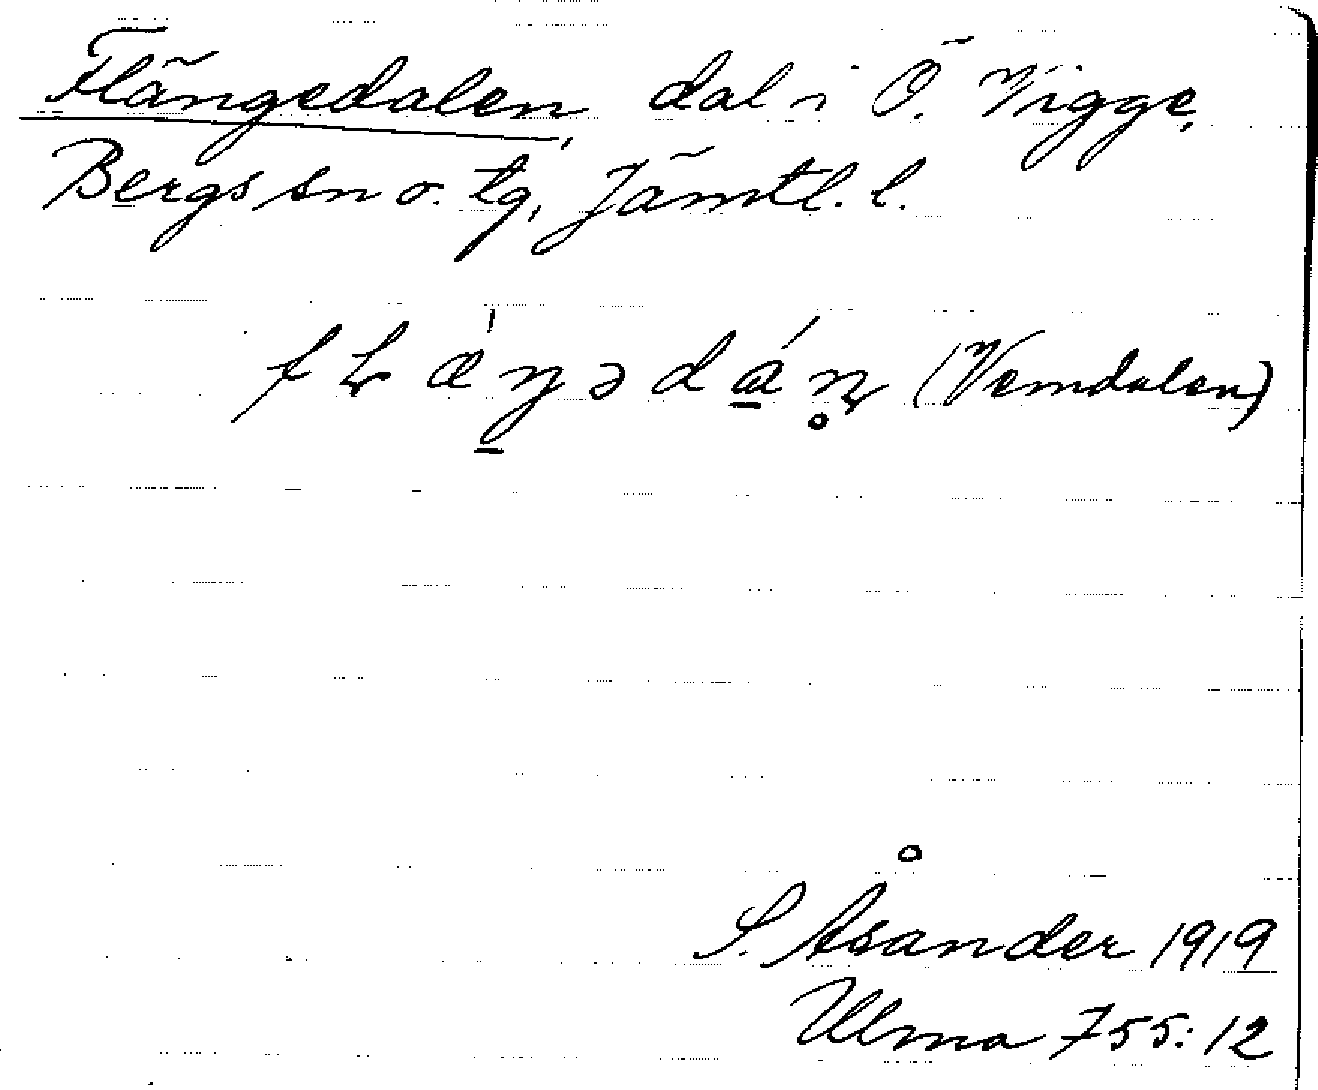 Flängedalen, dal i Ö. Vigge,
Bergs sn o. tg, Jämtl. l.
(Vemdalen)
S. Åsander 1919
Ulma 755:12